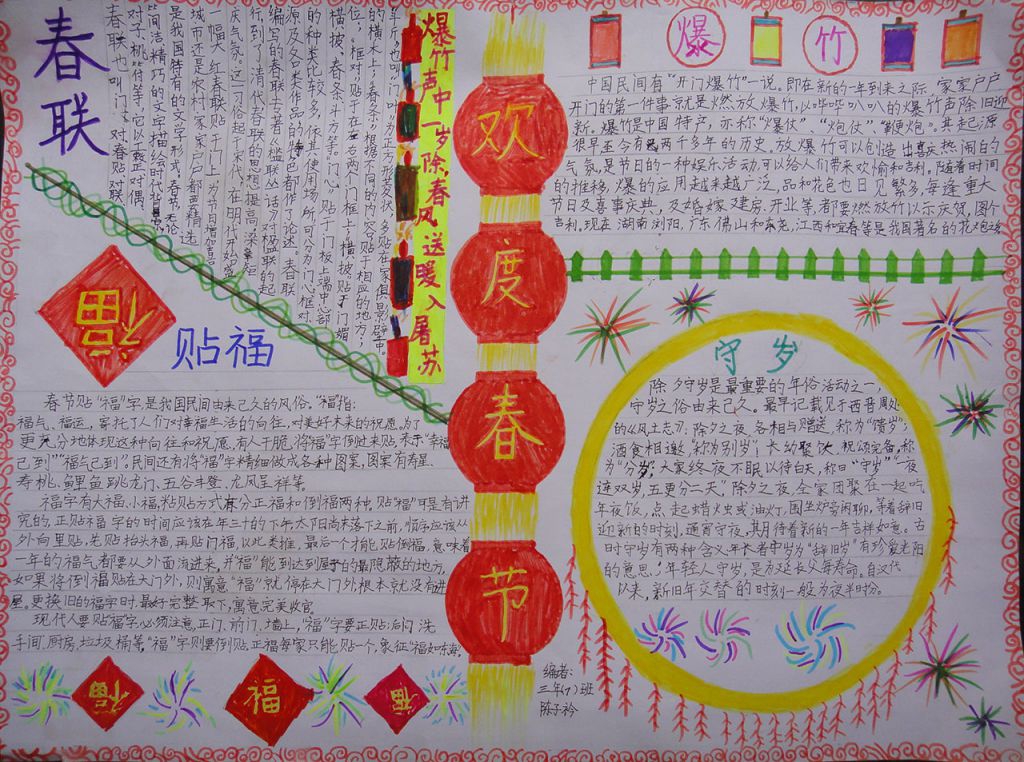 春联
春联也叫门对、春贴、对联、
对子、桃符等,它以工整、对偶、
简洁、精巧的文字描绘时代背景,
是我国特有的文字形式。春节,无论
城市还是农村,家家户户都要精选
一幅大红春联贴于门上,为节日增加喜
庆气氛。这一习俗起于宋代,在明代开始盛
行,到了清代,春联的思想
源及各类作品的特色都作了论述。春联
的种类比较多,依其使用场所,可分为门心、框对、
横披、春条、斗方等。“门心”贴于门板上端中心部
位,“框对”贴于左右两个门框上,“横披”贴于门楣
的横木上,“春条”根据不同的内容贴于相应的地方,
爆竹声中一岁除,春风送暖入屠苏
欢度春节
爆竹
中国民间有“开门爆竹”一说。即在新的一年到来之际,家家户户
开门的第一件事就是燃放爆竹,以哔哔叭叭的爆竹声除旧迎
新。爆竹是中国特产,亦称“爆仗”、“炮仗”、“鞭炮”。其起源
很早,至今有两千多年的历史,放爆竹可以创造出喜庆热闹的
气氛,是节日的一种娱乐活动,可以给人们带来欢愉和吉利,随着时间
的推移,爆的应用越来越广泛,品和花色也日见繁多,每逢重大
节日及喜事庆典,及婚嫁、建房、开业等,都要燃放爆竹以示庆贺,图个
吉利,现在,湖南浏阳,广东佛山和东尧,江西和宜春等是我国著名的花炮之
福
贴福
春节贴“福”字,是我国民间由来已久的风俗。“福”指
福气、福运,寄托了人们对幸福生活的向往,对美好未来的祝愿。为了
更充分地体现这种向往和祝愿,有人干脆将“福”字倒过来贴,表示“幸福
已到”“福气已到”。民间还有将“福”字精细做成各种图案,图案有寿星、
寿桃、鲤鱼跳龙门、五谷丰登、龙凤呈祥等。
福字有大福、小福,粘贴方式有分正福和倒福两种,贴“福”可是有讲
究的,正贴福字的时间应该在年三十的下午太阳尚未落之前,顺序应该从
外向里贴,先贴抬头福,再贴门福,以此类推,最后一个才能贴倒福,意味着
一年的福气都要从外面流进来,并“福”能到达到屋子的最隐蔽的地方,
如果将倒福贴在大门外,则寓意“福”就停在大门外根本就没有进
屋。更换旧的福字时,最好完整取下,寓意完美收官。
现代人要贴福字必须注意,正门、前门、墙上,“福”字要正贴;后门、洗
手间、厨房、垃圾桶等,“福”字则要倒贴,正福每家只能贴一个,象征“福如东海”
福
福
福
守岁
除夕守岁是最重要的年俗活动之一,
守岁之俗由来已久。最早记载见于西晋周处
的《风土志》:除夕之夜,各相与赠送,称为“馈岁”;
酒食相邀,称为“别岁”;长幼聚饮,祝颂完备,称
为“分岁”;大家终夜不眠,以待白天,称曰“守岁”。“一夜
连双岁,五更分二天”,除夕之夜,全家团聚在一起吃
年夜饭,点起蜡烛或油灯,围坐炉旁闲聊,等着辞旧
迎新的时刻,通宵守夜,其期待着新的一年吉祥如意。古
时守岁有两种含义:年长者守岁为“辞旧岁”,有珍爱光阴
的意思;年轻人守岁,是为延长父母寿命。自汉代
以来,新旧年交替的时刻一般为夜半时份。
编者:
三年(7)班
陈子衿